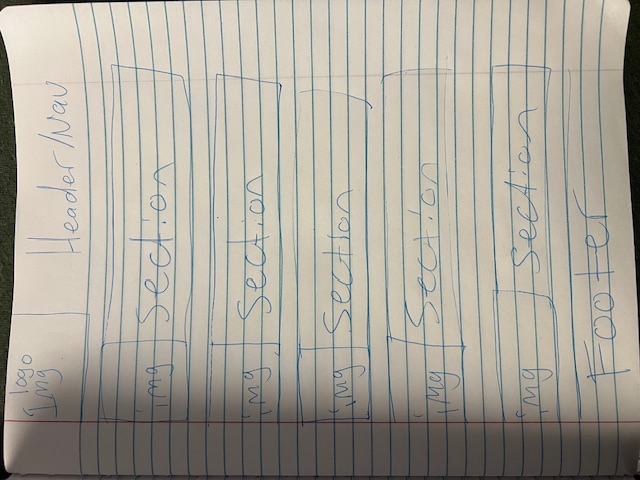 logo
Img
Header/Nav
img Section
img Section
img Section
img Section
img Section
Footer